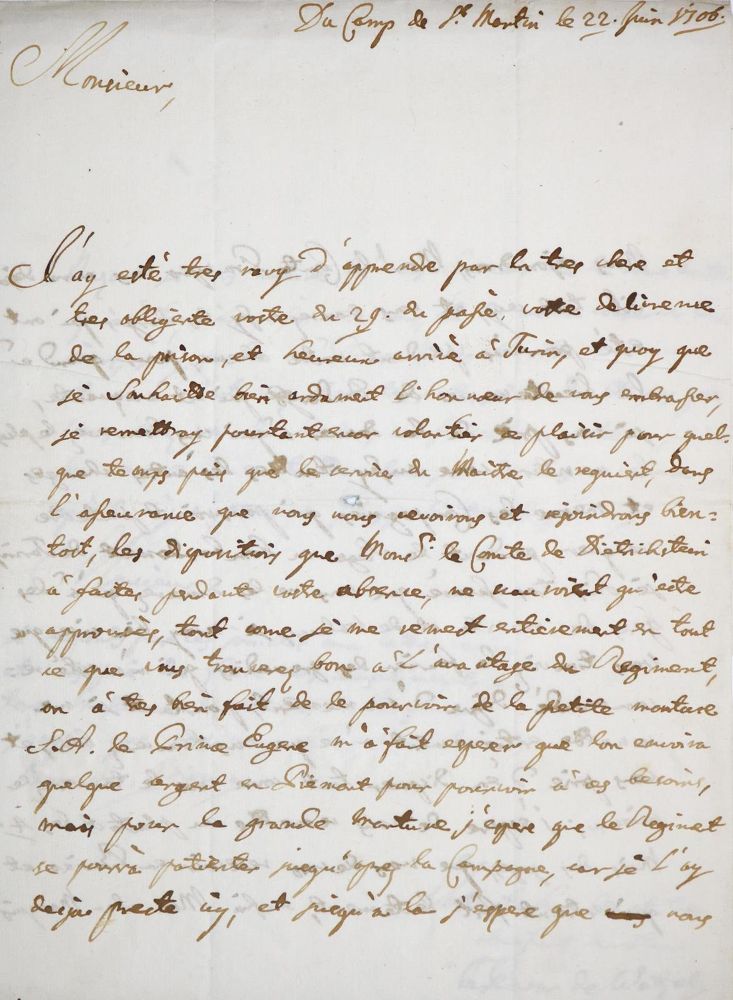 Du Camp de St. Martin le 22. Juin 1706.
Monsieur,
J'ay esté tres ravy d'apprendre par la tres chere et
tres obligente vostre du 29. du passé, vottre delivrence
de la prison, et heureux arrivé à Turin, et quoy que
je Souhaitte bien ardament l'honnoeur de vous embrasser,
je remettray pourtant encor volontier ce plaisir pour quel-
que temps puis que le service du Maitre le requiert, dans
l'asseurance que nous nous revoirons et rejoindrons bien=
tost, les dispositions que Monsr. le Comte de Dietrichstein
à faites pendant vostre absence, ne sauroient qu'este
approuvées, tout come je me remest entierement en tout
ce que vous trouverez bon à L'avantage du Regiment,
on à tres bien fait de le pourvoir de la petite monture
S. A. le Prince Eugene m'à fait esperer que lon envoira
quelque argent en Piemont pour pourvoir à ces besoins,
mais pour la grande Monture j'espere que le Regiment
se pourrà patienter jusqu'apres la Campagne, car je l'ay
desja preste icy, et jusqu'a la j'espere que nous